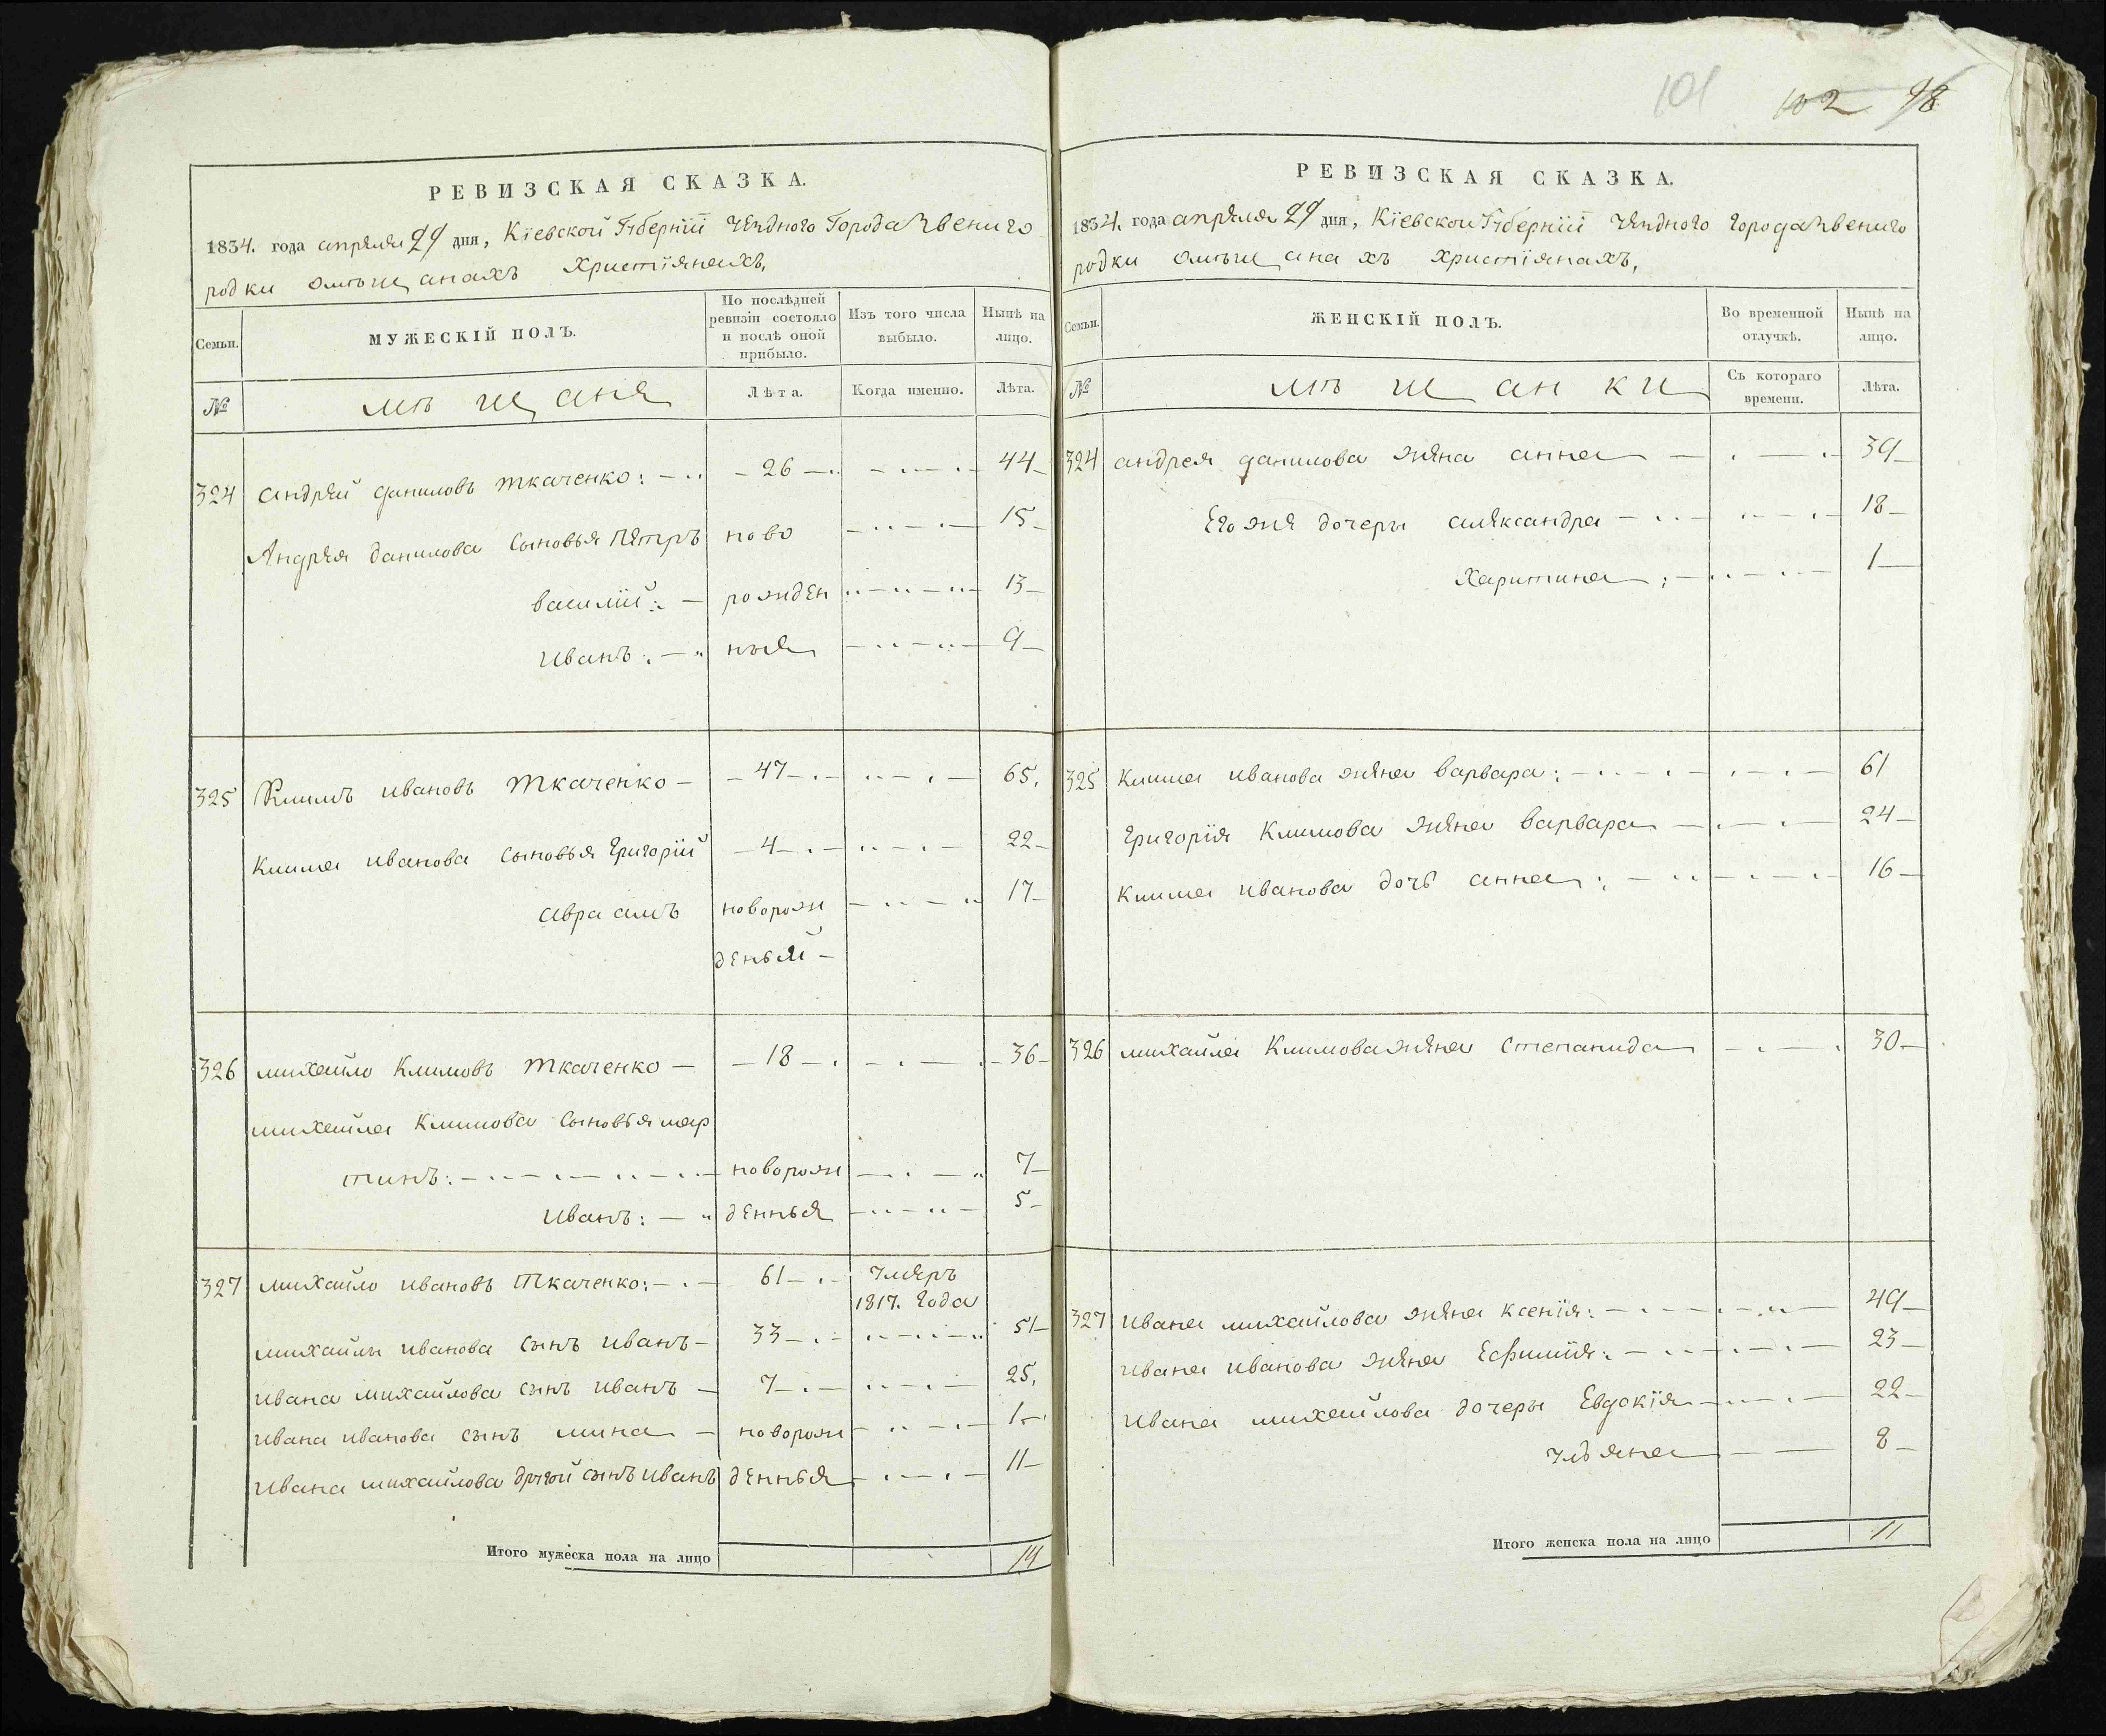 101 102 98
РЕВИЗСКАЯ СКАЗКА.
1834. года апреля 29 дня, Кіевской Губерніи Уезднаго Города Звениго
родки омѣщанахъ Христіянехъ,
Семьи. МУЖЕСКІЙ ПОЛЪ. По послѣдней ревизіи состояло и послѣ оной прибыло. Изъ того числа выбыло. Нынѣ на лицо.
№ мѣщане Лѣта. Когда именно. Лѣта.
324 андрей даниловъ ткаченко: 26 44
Андрея данилова сыновья петръ ново 15
василій: рожден 13
иванъ: ные 9
325 Климъ ивановъ Ткаченко 47 65,
Клима иванова сыновья григорій 4 22
авраамъ новорож 17
деный
326 михайло Климовъ Ткаченко 18 36
михайла Климова сыновья мар
тинъ: новорож 7
иванъ: денныя 5
327 михайло ивановъ Ткаченко: 61 умеръ
1817. года
михайлы иванова сынъ иванъ 33 51
ивана михайлова сынъ иванъ 7 25,
ивана иванова сынъ мина новорож 1
ивана михайлова другой сынъ иванъ денныя 11
Итого мужеска пола на лицо 14
РЕВИЗСКАЯ СКАЗКА.
1834. года апреля 29 дня, Кіевской Губерніи Уезднаго города Звениго
родки омѣщанахъ христіянахъ,
Семьи. ЖЕНСКІЙ ПОЛЪ. Во временной отлучкѣ. Нынѣ на лицо.
№ мѣщанки Съ котораго времени. Лѣта.
324 андрея данилова жена анна 39
Его же дочери александра 18
Харитина: 1
325 Клима иванова жена варвара: 61
григорія Климова жена варвара 24
Клима иванова дочь анна: 16
326 михайла Климова жена степанида 30
327 ивана михайлова жена ксенія: 49
ивана иванова жена Ефимія: 23
ивана михайлова дочери Евдокія 22
ульяна 8
Итого женска пола на лицо 11